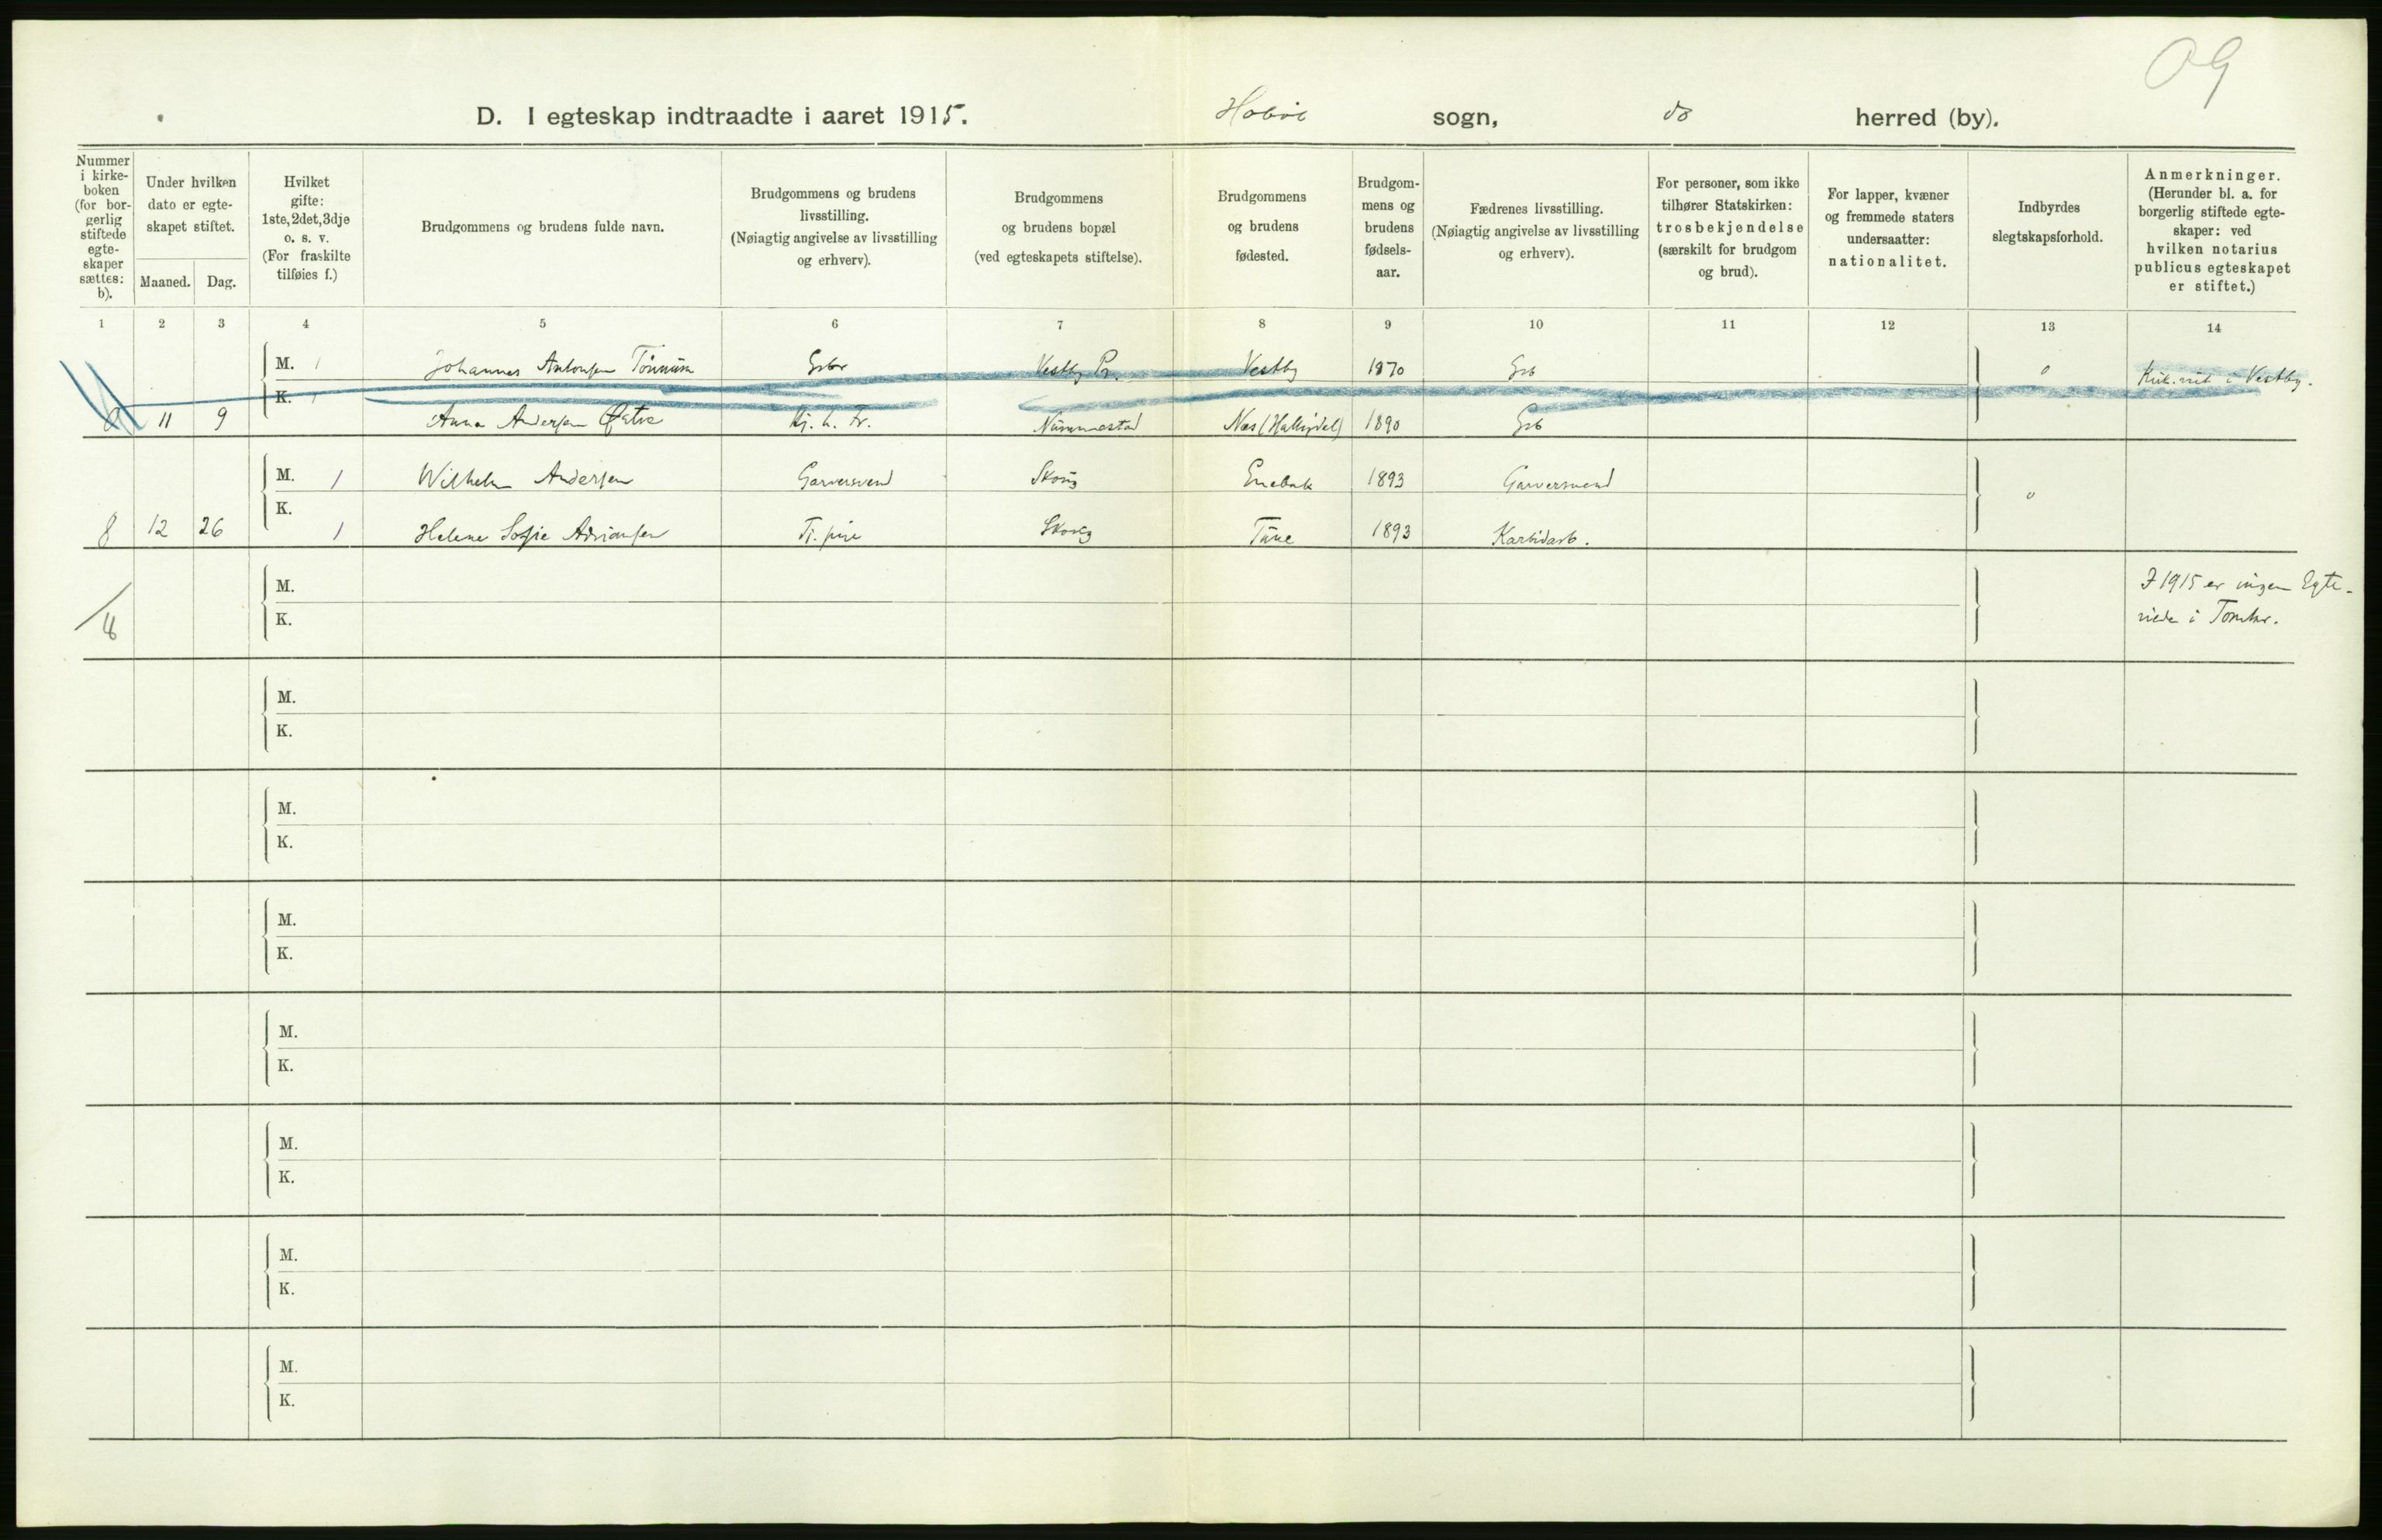 09
D. I egteskap indtraadte i aaret 1915. Hobøl sogn, do herred (by).
Nummer i kirkeboken (for borgerlig stiftede egteskaper sættes: b).
Under hvilken dato er egteskapet stiftet.
Maaned. Dag.
Hvilket gifte: 1ste, 2det, 3dje o. s. v. (For fraskilte tilføies f.)
Brudgommens og brudens fulde navn.
Brudgommens og brudens livsstilling. (Nøiagtig angivelse av livsstilling og erhverv).
Brudgommens og brudens bopæl (ved egteskapets stiftelse).
Brudgommens og brudens fødested.
Brudgommens og brudens fødselsaar.
Fædrenes livsstilling. (Nøiagtig angivelse av livsstilling og erhverv).
For personer, som ikke tilhører Statskirken: trosbekjendelse (særskilt for brudgom og brud).
For lapper, kvæner og fremmede staters undersaatter: nationalitet.
Indbyrdes slegtskapsforhold.
Anmerkninger. (Herunder bl. a. for borgerlig stiftede egteskaper: ved hvilken notarius publicus egteskapet er stiftet.)
1 2 3 4 5 6 7 8 9 10 11 12 13 14
M. 1 Johannes Antonsen Gbr Vestby Pr. Vestby 1870 Gb 0 i Vestby.
11 9 K. 1 Anna Andersen Kj. h. Fr. Nummestad Næs (Hallingdal) 1890 Gb
M. 1 Wilhelm Andersen Garversvend Skoug Enebak 1893 Garversvend 0
8 12 26 K. 1 Helene Sofie Adriansen Tj. pige Skoug Tune 1893 Karbidarb.
M. I 1915 er ingen Egte-
K. viede i Tomter.
M.
K.
M.
K.
M.
K.
M.
K.
M.
K.
M.
K.
M.
K.